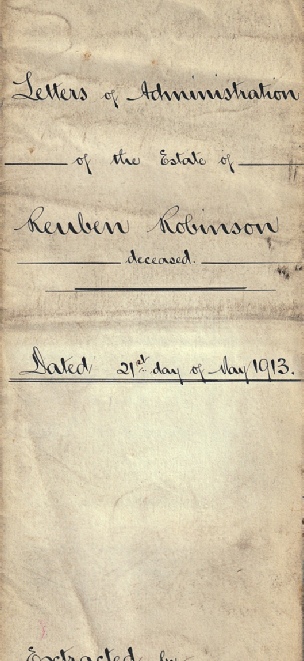 Letters of Administration
of the Estate of
Reuben Robinson
deceased.
Dated 21st day of May 1913.
Extracted by